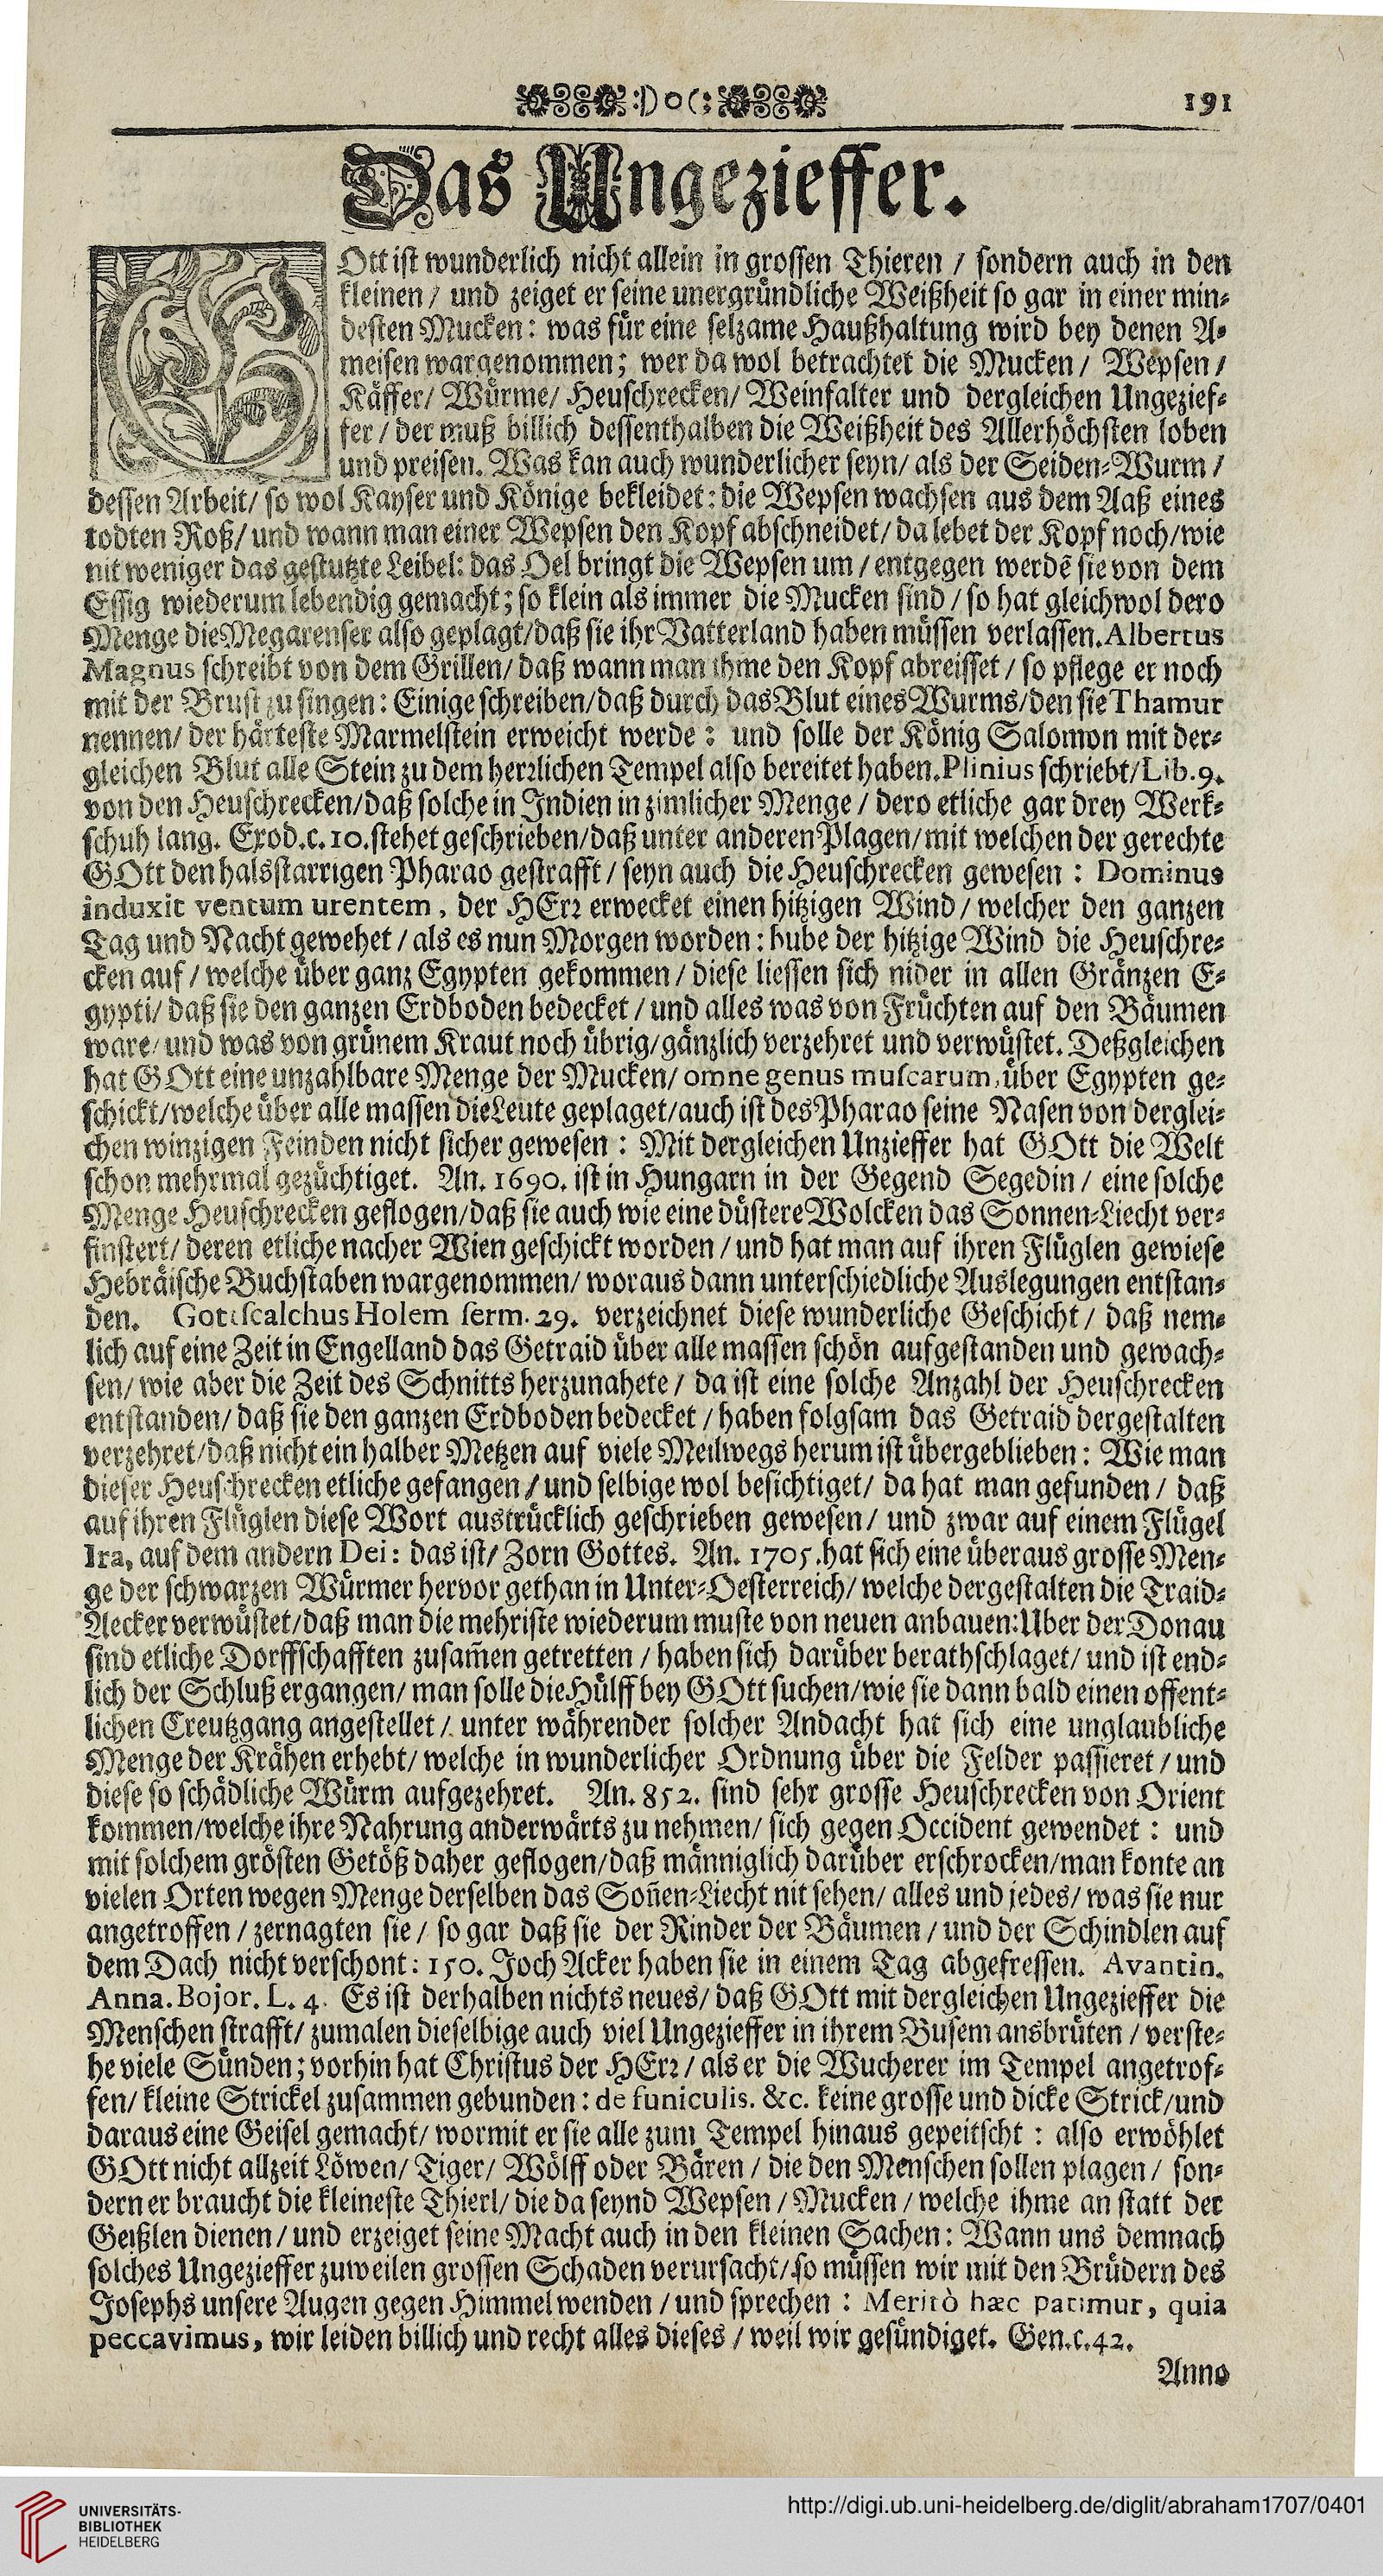 :)o(: 191
Das Ungezieffer.
GOtt ist wunderlich nicht allein in grossen Thieren / sondern auch in den
kleinen / und zeiget er seine unergründliche Weißheit so gar in einer min-
desten Mucken: was für eine selzame Haußhaltung wird bey denen A-
meisen wargenommen; wer da wol betrachtet die Mucken / Wepsen /
Käffer/ Würme/ Heuschrecken/ Weinfalter und dergleichen Ungezief-
fer / der muß billich dessenthalben die Weißheit des Allerhöchsten loben
und preisen. Was kan auch wunderlicher seyn/ als der Seiden-Wurm /
dessen Arbeit/ so wol Kayser und Könige bekleidet: die Wepsen wachsen aus dem Aaß eines
todten Roß/ und wann man einer Wepsen den Kopf abschneidet/ da lebet der Kopf noch/wie
nit weniger das gestutzte Leibel: das Oel bringt die Wepsen um / entgegen werdē sie von dem
Essig wiederum lebendig gemacht; so klein als immer die Mucken sind / so hat gleichwol dero
Menge die Megarenser also geplagt/daß sie ihr Vatterland haben müssen verlassen. Albertus
Magnus schreibt von dem Grillen/ daß wann man ihme den Kopf abreisset / so pflege er noch
mit der Brust zu singen: Einige schreiben/daß durch das Blut eines Wurms/den sie Thamur
nennen/ der härteste Marmelstein erweicht werde: und solle der König Salomon mit der-
gleichen Blut alle Stein zu dem herrlichen Tempel also bereitet haben. Plinius schriebt/Lib. 9.
von den Heuschrecken/daß solche in Indien in zimlicher Menge / dero etliche gar drey Werk-
schuh lang. Exod. c. 10. stehet geschrieben/daß unter anderen Plagen/mit welchen der gerechte
GOtt den halsstarrigen Pharao gestrafft / seyn auch die Heuschrecken gewesen: Dominus
induxit ventum urentem, der HErr erwecket einen hitzigen Wind / welcher den ganzen
Tag und Nacht gewehet / als es nun Morgen worden: hube der hitzige Wind die Heuschre-
cken auf / welche über ganz Egypten gekommen / diese liessen sich nider in allen Gränzen E-
gypti/ daß sie den ganzen Erdboden bedecket / und alles was von Früchten auf den Bäumen
ware/ und was von grünem Kraut noch übrig/gänzlich verzehret und verwüstet. Deßgleichen
hat GOtt eine unzahlbare Menge der Mucken/ omne genus muscarum, über Egypten ge-
schickt/welche über alle massen die Leute geplaget/auch ist des Pharao seine Nasen von derglei-
chen winzigen Feinden nicht sicher gewesen: Mit dergleichen Unzieffer hat GOtt die Welt
schon mehrmal gezüchtiget. An. 1690. ist in Hungarn in der Gegend Segedin / eine solche
Menge Heuschrecken geflogen/daß sie auch wie eine düstere Wolcken das Sonnen-Liecht ver-
finstert/ deren etliche nacher Wien geschickt worden / und hat man auf ihren Flüglen gewiese
Hebräische Buchstaben wargenommen/ woraus dann unterschiedliche Auslegungen entstan-
den. Gottscalchus Holem serm. 29. verzeichnet diese wunderliche Geschicht / daß nem-
lich auf eine Zeit in Engelland das Getraid über alle massen schön aufgestanden und gewach-
sen/ wie aber die Zeit des Schnitts herzunahete / da ist eine solche Anzahl der Heuschrecken
entstanden/ daß sie den ganzen Erdboden bedecket / haben folgsam das Getraid dergestalten
verzehret/daß nicht ein halber Metzen auf viele Meilwegs herum ist übergeblieben: Wie man
dieser Heuschrecken etliche gefangen / und selbige wol besichtiget/ da hat man gefunden / daß
auf ihren Flüglen diese Wort austrücklich geschrieben gewesen / und zwar auf einem Flügel
Ira, auf dem andern Dei: das ist/ Zorn Gottes. An. 1705. hat sich eine überaus grosse Men-
ge der schwarzen Würmer hervor gethan in Unter-Oesterreich/ welche dergestalten die Traid-
Aecker verwüstet/daß man die mehriste wiederum muste von neuen anbauen: Uber der Donau
sind etliche Dorffschafften zusam̄en getretten / haben sich darüber berathschlaget/ und ist end-
lich der Schluß ergangen/ man solle die Hülff bey GOtt suchen/wie sie dann bald einen offent-
lichen Creutzgang angestellet /. unter währender solcher Andacht hat sich eine unglaubliche
Menge der Krähen erhebt/ welche in wunderlicher Ordnung über die Felder passieret / und
diese so schädliche Würm aufgezehret. An. 852. sind sehr grosse Heuschrecken von Orient
kommen/welche ihre Nahrung anderwärts zu nehmen/ sich gegen Occident gewendet: und
mit solchem grösten Getöß daher geflogen/daß männiglich darüber erschrocken/man konte an
vielen Orten wegen Menge derselben das Son̄en-Liecht nit sehen/ alles und jedes/ was sie nur
angetroffen / zernagten sie / so gar daß sie der Rinder der Bäumen / und der Schindlen auf
dem Dach nicht verschont: 150. Joch Acker haben sie in einem Tag abgefressen. Avantin.
Anna. Bojor. L. 4. Es ist derhalben nichts neues/ daß GOtt mit dergleichen Ungezieffer die
Menschen strafft/ zumalen dieselbige auch viel Ungezieffer in ihrem Busem ansbrüten / verste-
he viele Sünden; vorhin hat Christus der HErr / als er die Wucherer im Tempel angetrof-
fen/ kleine Strickel zusammen gebunden: de funiculis. &c. keine grosse und dicke Strick/und
daraus eine Geisel gemacht/ wormit er sie alle zum Tempel hinaus gepeitscht: also erwöhlet
GOtt nicht allzeit Löwen/ Tiger/ Wölff oder Bären / die den Menschen sollen plagen / son-
dern er braucht die kleineste Thierl/ die da seynd Wepsen / Mucken / welche ihme an statt der
Geißlen dienen / und erzeiget seine Macht auch in den kleinen Sachen: Wann uns demnach
solches Ungezieffer zuweilen grossen Schaden verursacht/ so müssen wir mit den Brüdern des
Josephs unsere Augen gegen Himmel wenden / und sprechen: Meritò hæc patimur, quia
peccavimus, wir leiden billich und recht alles dieses / weil wir gesündiget. Gen. c. 42.
Anno
UNIVERSITÄTS-
BIBLIOTHEK
HEIDELBERG
http://digi.ub.uni-heidelberg.de/diglit/abraham1707/0401